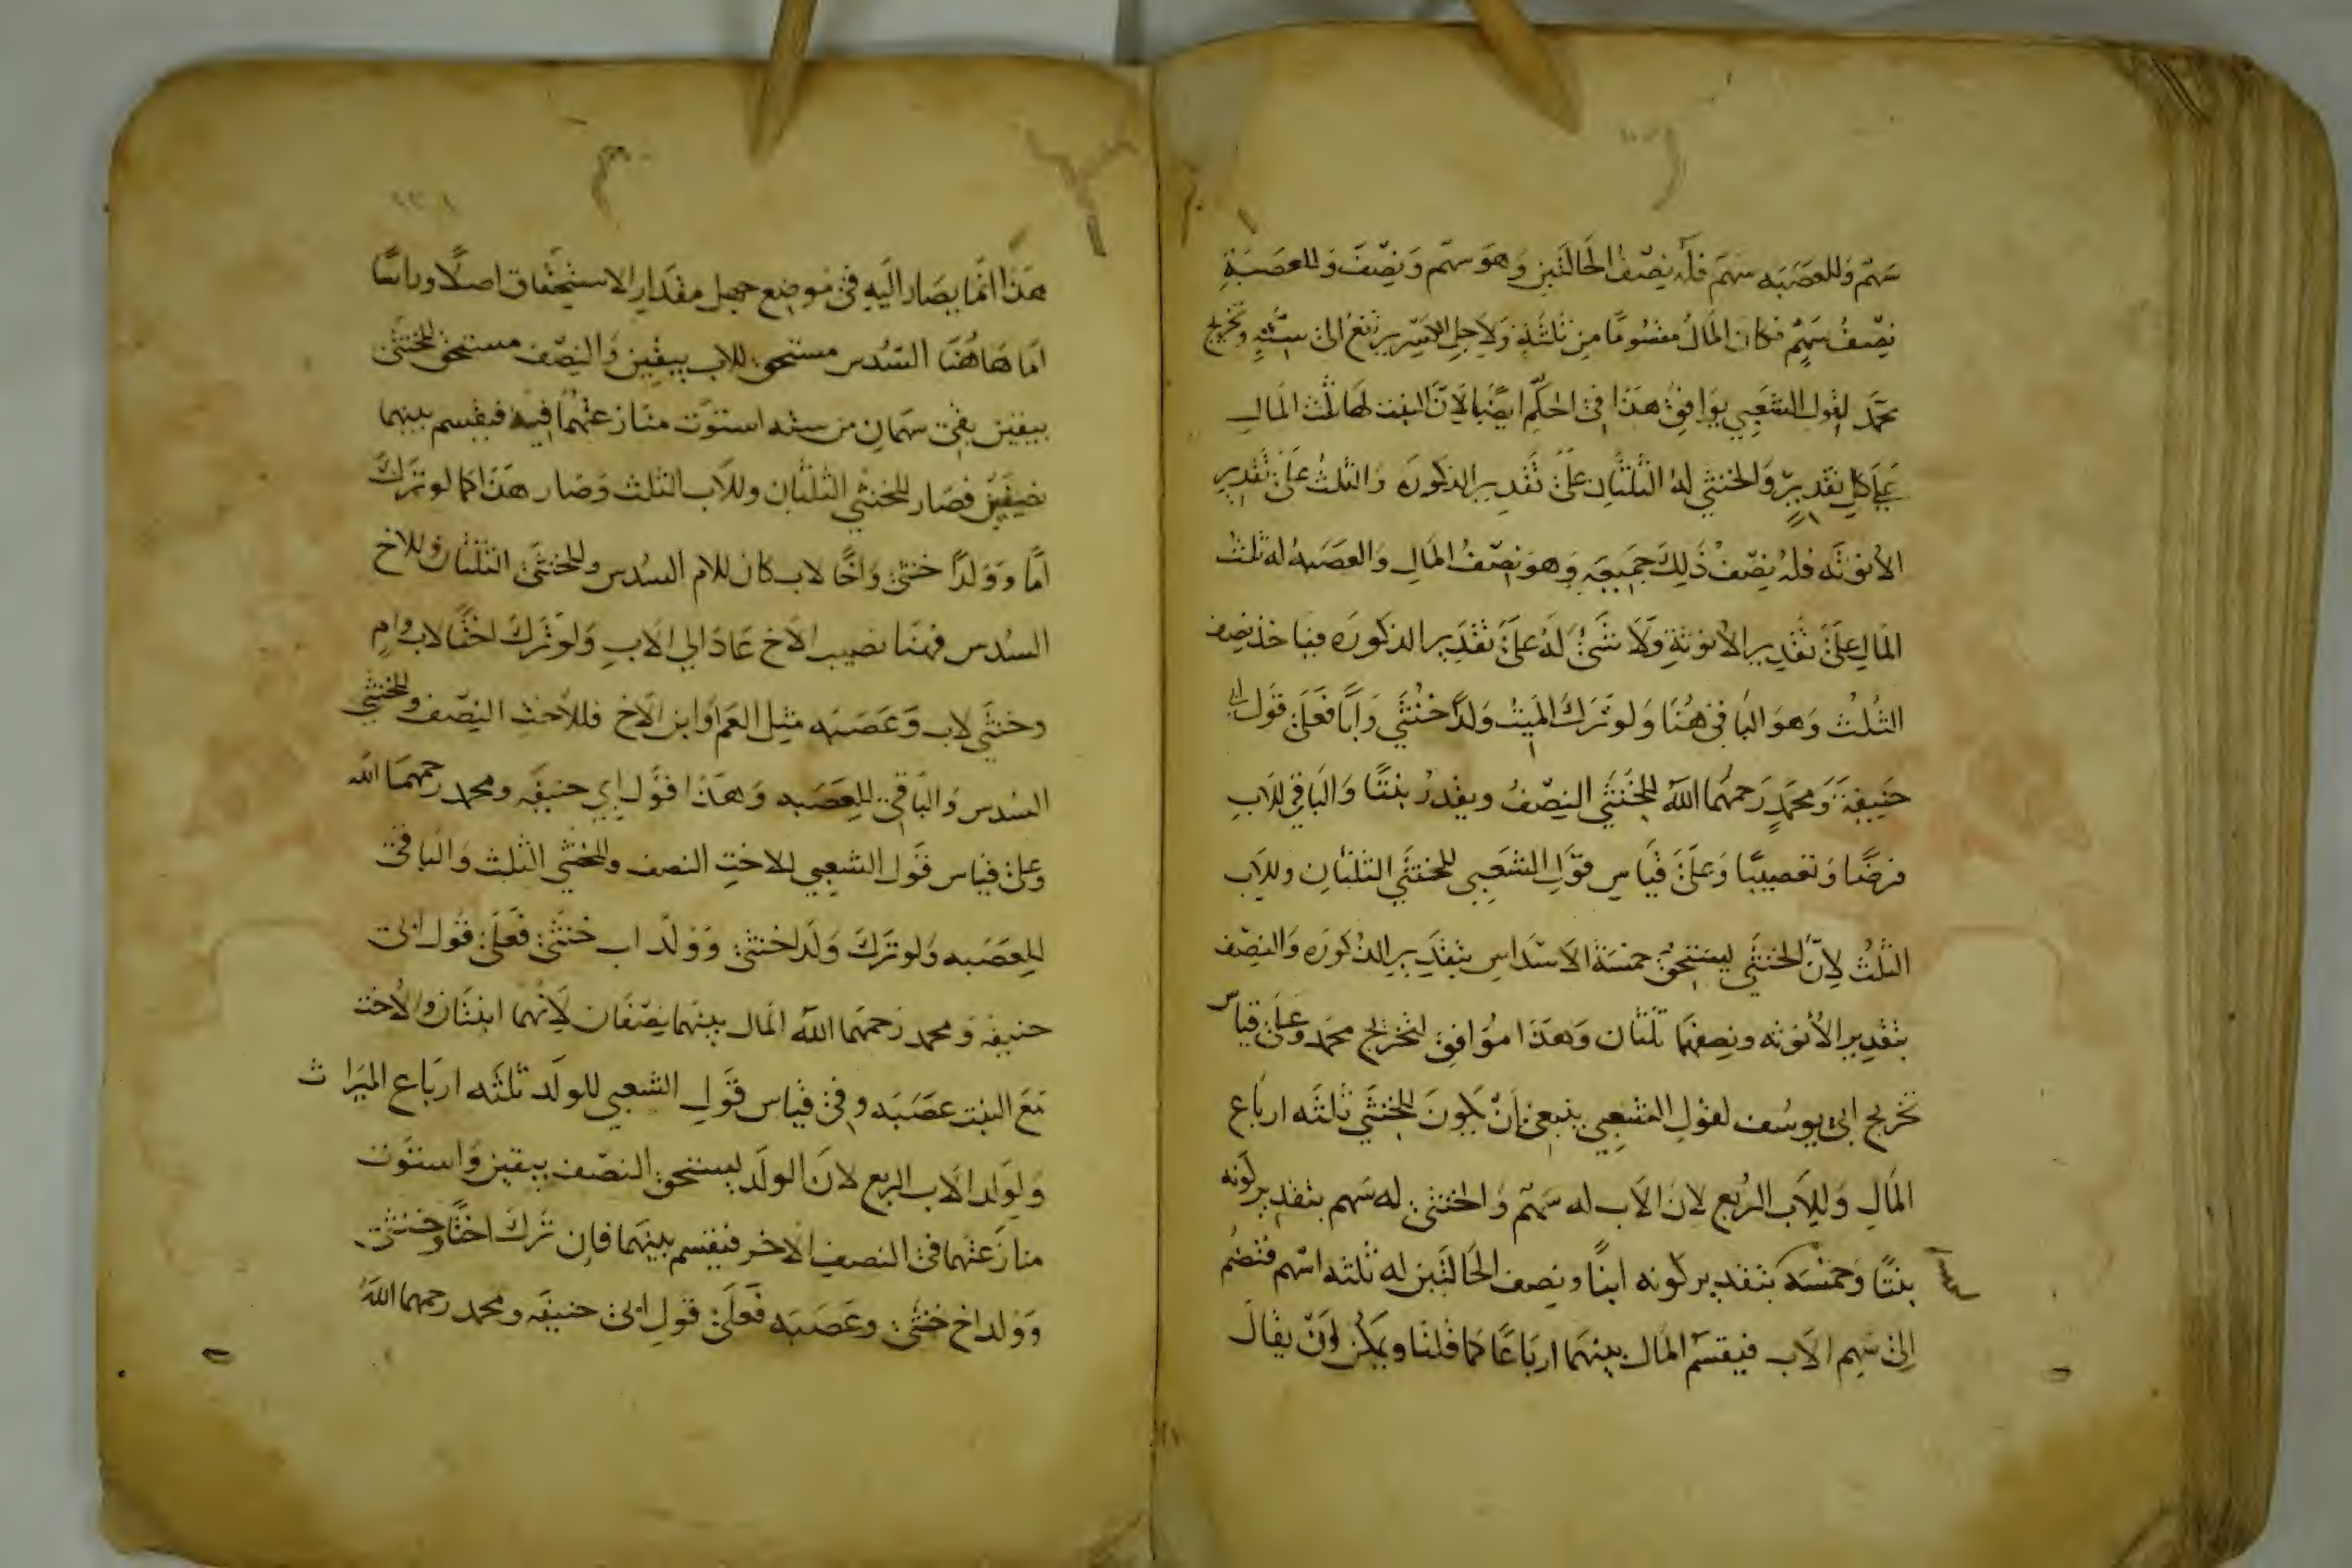 سَهْم وَللعصَبَه سَهم فله نِصْفُ الحَالتَين وهوَ سهم وَنصْف وَللعصَبَةِ
نِصْفُ سَهْمٍ فكان المالُ مقسُومًا مِن ثلثَةِ وَلاجل الكسْر يرتفع الى ستَّةٍ وتخريج
محمَّد لقول الشعبي يوَافِق هذا فى الحكم ايضًا لانّ البنت لها ثلث المال
عَلى كلِ تقديرٍ وَالخنثي لهُ الثلثان على تقدير الذكورَه وَالثلثُ عَلى تقدير
الانوثَه فلهُ نصْفُ ذَلِكَ جميعِه وَهوَ نصْفُ المَالِ وَالعصَبهُ له ثلثُ
المَالِ عَلى تقْدِير الأنوثةِ وَلا شَىْءَ لَهُ عَلَى تقْدِير الذكورَه فياخذ نصف
الثلثْ وَهوَ البَاقى هُنَا وَلو تَرَكَ الميتْ وَلدًا خنثي وَابًا فعَلى قَول ابى
حَنِيفةَ وَمحمَّدٍ رَحمهُمَا اللهُ للخُنثَي النِصْفُ ويقدرُ بنتًا وَالبَاقي للابِ
فرضًا وَتعصيبًا وَعَلَى قيَاسِ قوْل الشعَبي للخنثَي الثلثانِ وللاب
الثلثُ لانَّ الخنثَي يستحقُ خمسَة الاسْدَاسِ بتقْدِير الذكورَه وَالنصْف
بتقدِير الأنوثه ونصفهمَا ثلثان وَهذا مُوَافِق لتخريج محمَد وَعلى قياس
تخريج ابى يوسُف لقولِ الشعِبي ينبغى انْ يكونَ للخنثَي ثلثَه ارباع
المَالِ وَللاَب الرُبع لانَ الاَب له سَهْم وَالخنثى له سَهم بتقدِير كونه
بنتًا وَخمسَه بتقدير كونه ابنًا ونصف الحَالتَين له ثلثه اسْهم فتضُم
اِلى سَهمِ الاَب فيقسَم المَال بينهَمَا اربَاعًا كما قلنا ويمكن اَنْ يقال
هَذا انمَا يصَار اليَهِ فى مَوضِع جهل مقدَار الاستحقَاق اصلًا وراسًا
امَا هَاهُنَا السّدُس مستحق للاب بيقين وَالنصْف مستحق للخنثَى
بيقين بقى سَهمَان من سته استوَت منازعتهُمَا فيه فيقسم بينهما
نصفَين فصَار للخنثي الثلثان وللاَب الثلث وَصَار هذا كما لو تَركَ
امًا وَوَلدًا خنثى وَاخًا لاب كان للام السُدس وللخنثَى الثلثان وللاخ
السُدس فههنَا نصيب الاَخ عَادَ الى الاَبِ وَلو تَركَ اختًا لاب وام
وخنثَي لاب وَعَصَبَه مثل العَم اوَ ابن الاَخ فللاُخت النصْف وللخنثي
السُدس وَالبَاقى للِعَصَبه وَهذا قوْل ابي حنيفَه ومحمد رحمهمَا الله
وعَلى قيَاس قَول الشعبي للاختِ النصف وللخنثي الثلث وَالبَاقى
للِعَصَبه وَلو تَرَكَ وَلَدا خنثى وَوَلَد اب خنثَى فعَلى قَول ابى
حنيفه وَمحمد رَحمهَمَا اللهُ المَال بينهَمَا نصفَان لأنهمَا ابنتَان وَالاُخت
مَعَ البنت عصَبَه وفى قيَاس قوَل الشعبي للولَد ثلثَه ارباع الميَراث
وَلِوَلد الاَب الربع لانَ الولَد يستحق النصْف بيقين وَاستوَت
منازَعتهَما فى النصفِ الاَخر فيقسم بينهَما فإن تَركَ اختًا وخنثى
وَوَلد اخ خنثى وعَصَبه فعَلى قولِ ابى حنيفَه ومحمد رحمهما اللهُ